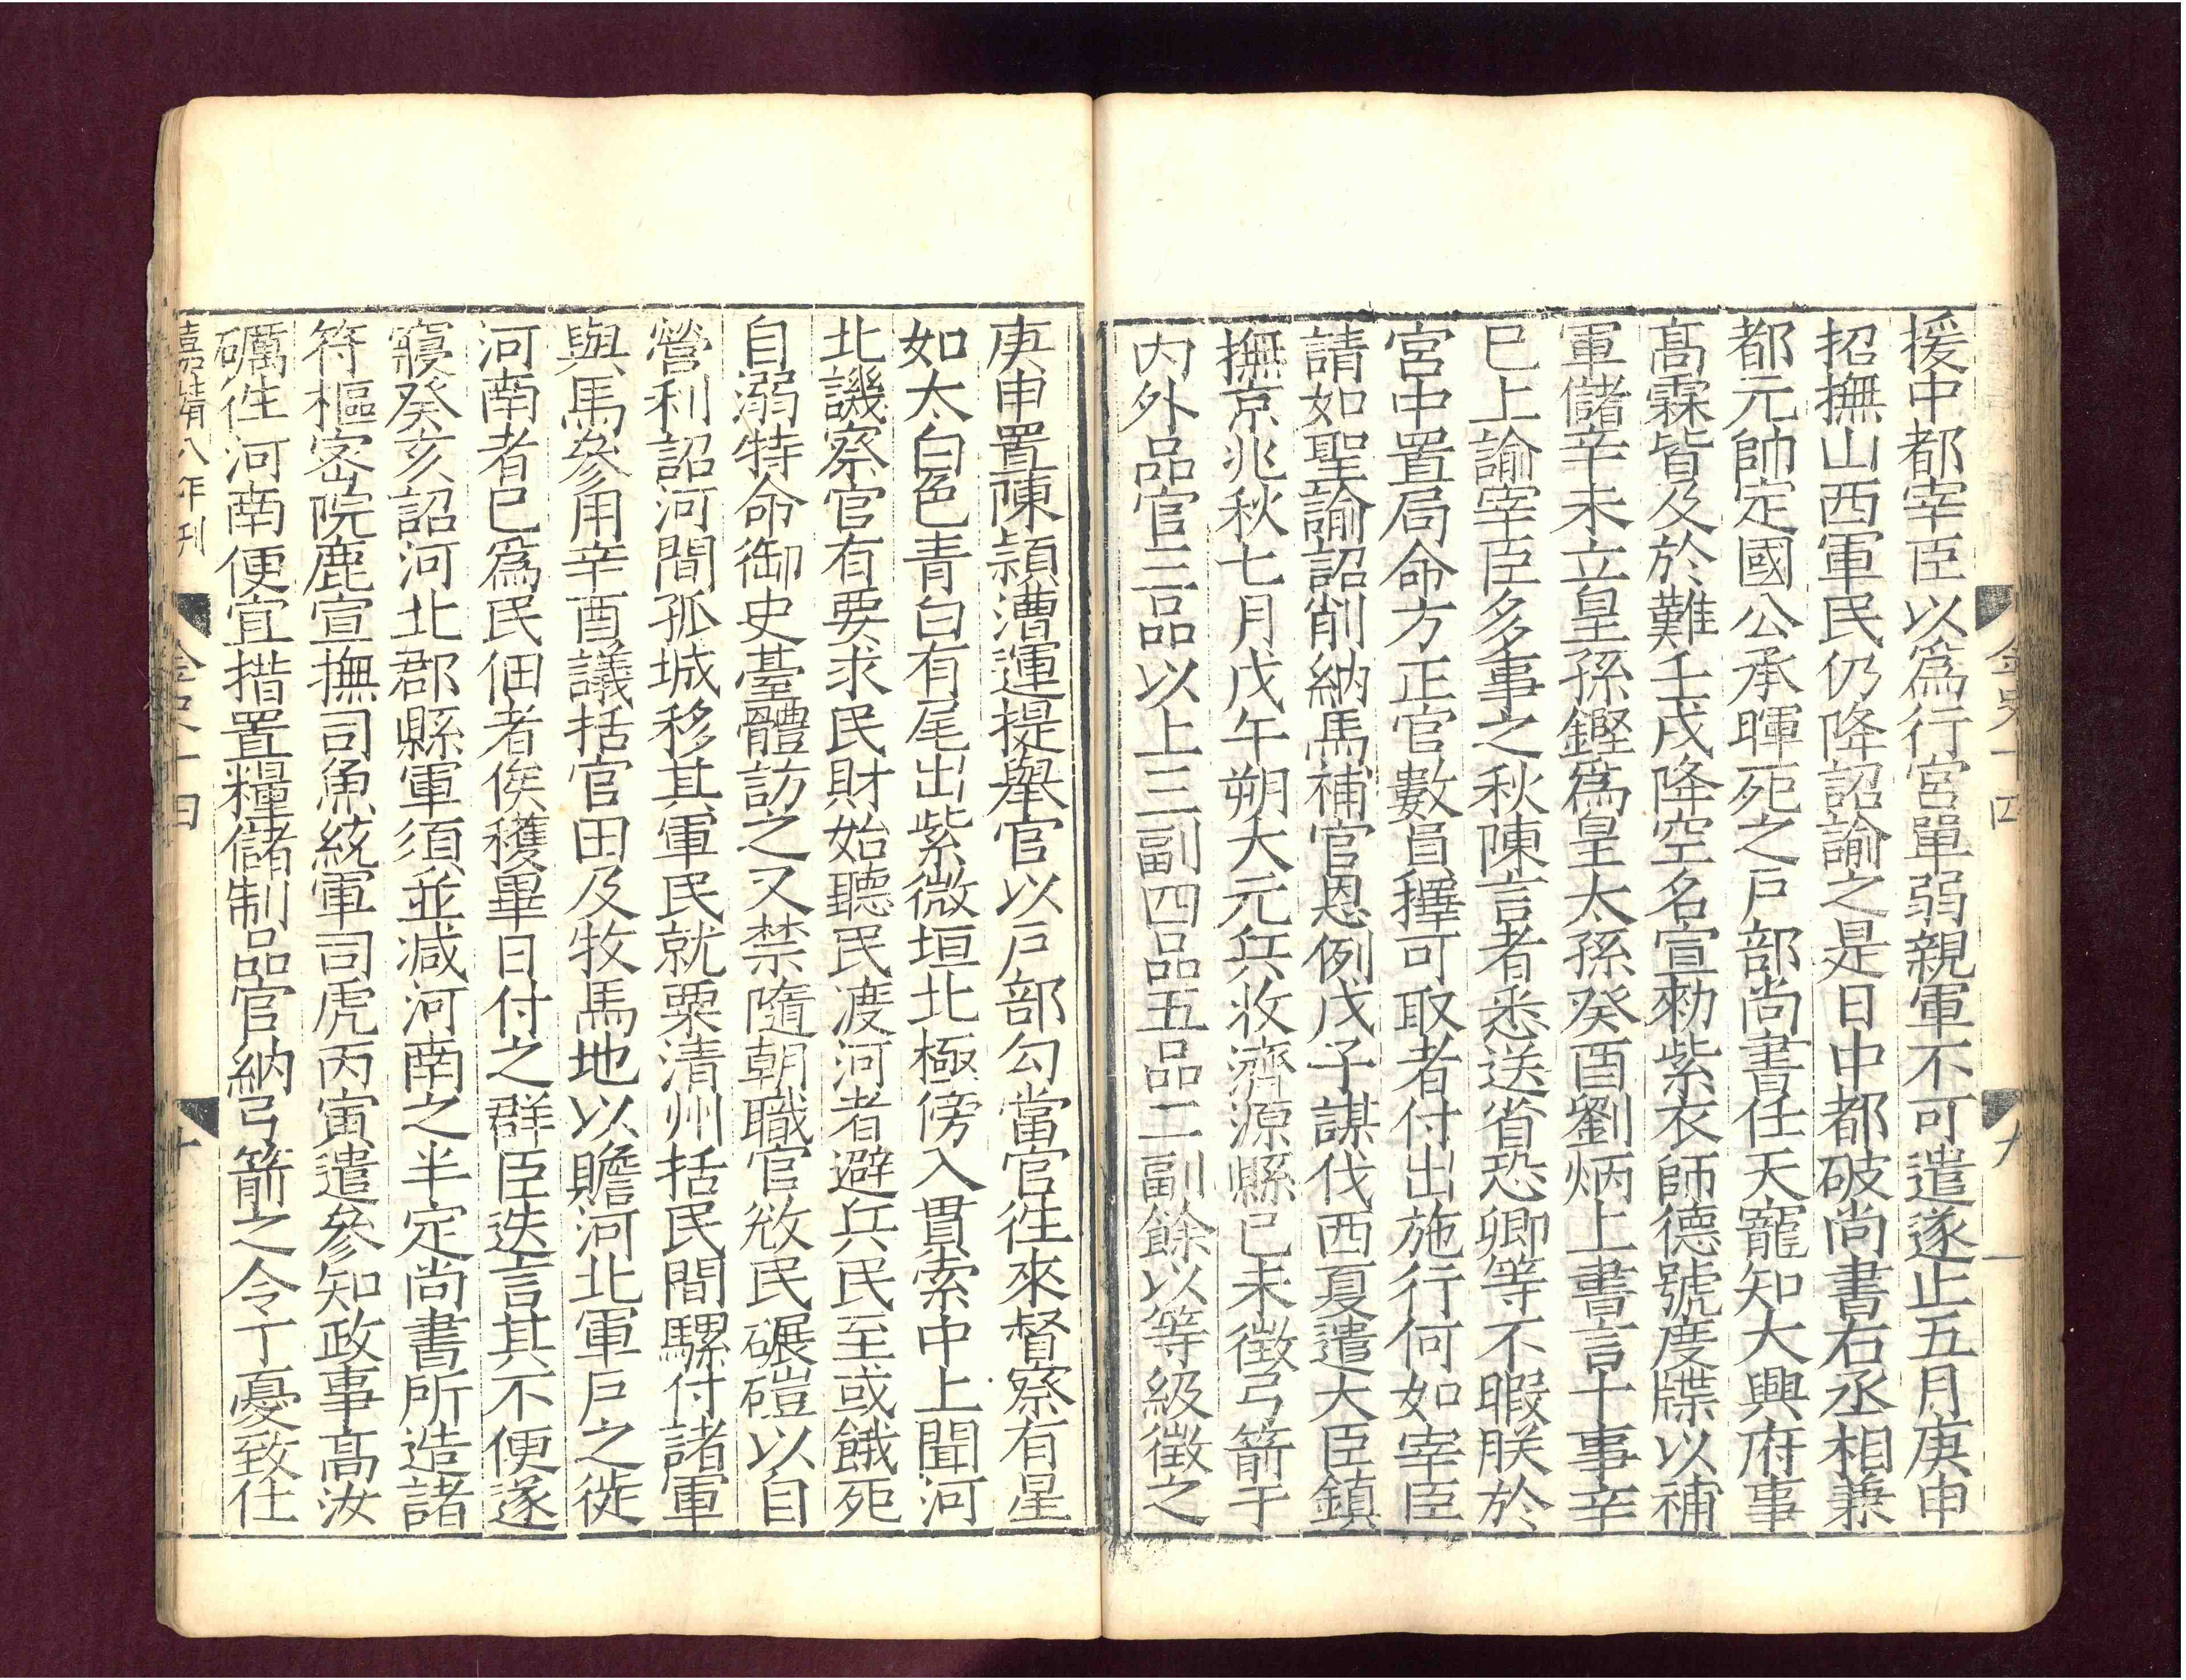 金史十四
九
援中都宰臣以爲行宮單弱親軍不可遣遂止五月庚申
招撫山西軍民仍降詔諭之是日中都破尚書右丞相兼
都元帥定國公承暉死之戶部尚書任天寵知大興府事
髙霖皆及於難壬戌降空名宣勑紫衣師德號度牒以補
軍儲辛未立皇孫鏗爲皇太孫癸酉劉炳上書言十事辛
巳上諭宰臣多事之秋陳言者悉送省恐卿等不暇朕於
宮中置局命方正官數員擇可取者付出施行何如宰臣
請如聖諭詔削納馬補官恩例戊子謀伐西夏遣大臣鎮
撫京兆秋七月戊午朔大元兵收濟源縣已未徵弓箭于
内外品官三品以上三副四品五品二副餘以等級徵之
庚申置陳潁漕運提舉官以戶部勾當官徃來督察有星
如太白色青白有尾出紫微垣北極傍入貫索中上聞河
北譏察官有要求民財始聽民渡河者避兵民至或餓死
自溺特命御史臺體訪之又禁隨朝職官敚民碾磑以自
營利詔河間孤城移其軍民就粟清州括民間騾付諸軍
與馬參用辛酉議括官田及牧馬地以贍河北軍戶之徙
河南者已爲民佃者俟穫畢日付之群臣迭言其不便遂
寢癸亥詔河北郡縣軍須並减河南之半定尚書所造諸
符樞密院鹿宣撫司魚統軍司虎丙寅遣參知政事髙汝
礪徃河南便宜措置糧儲制品官納弓箭之令丁憂致仕
嘉靖八年刊
金史十四
十